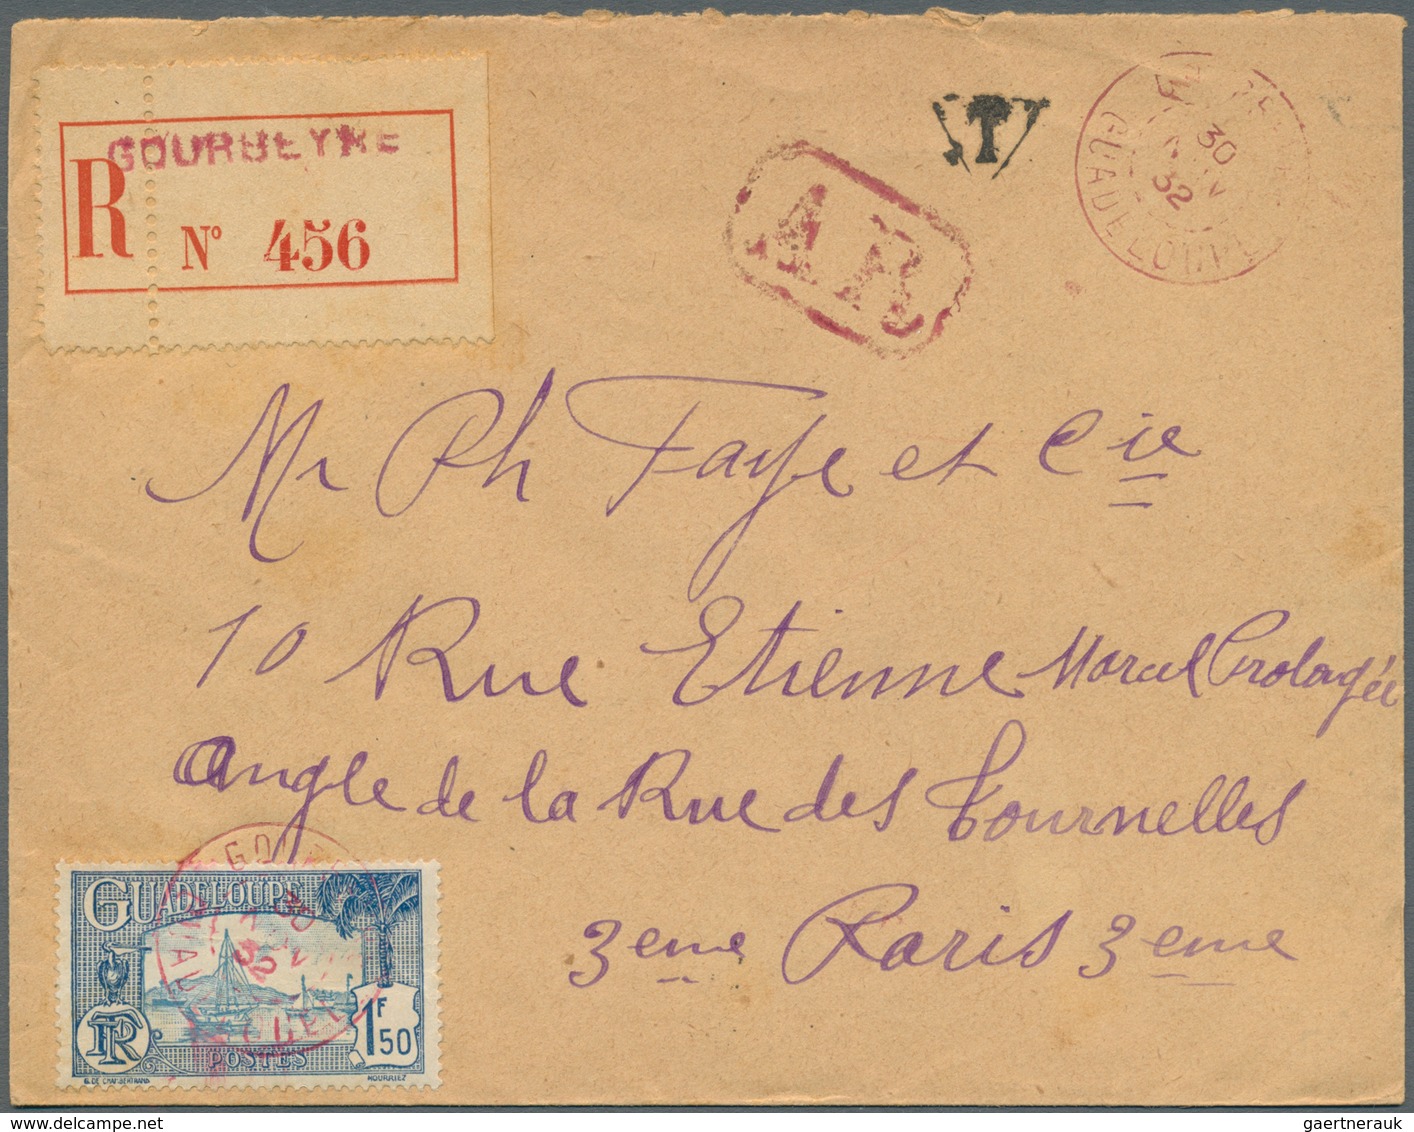 GOURBEYRE
R Nº 456
T
AR
30
32
GUADELOUPE
Mr Ph Faye et Cie
10 Rue Etienne Marcel Prolongée
Angle de la Rue des Tournelles
3eme Paris 3eme
GUADELOUPE
RF
1F50
POSTES
G. DE CHAMBERTRAND
NOURRIEZ
gaertnerauk